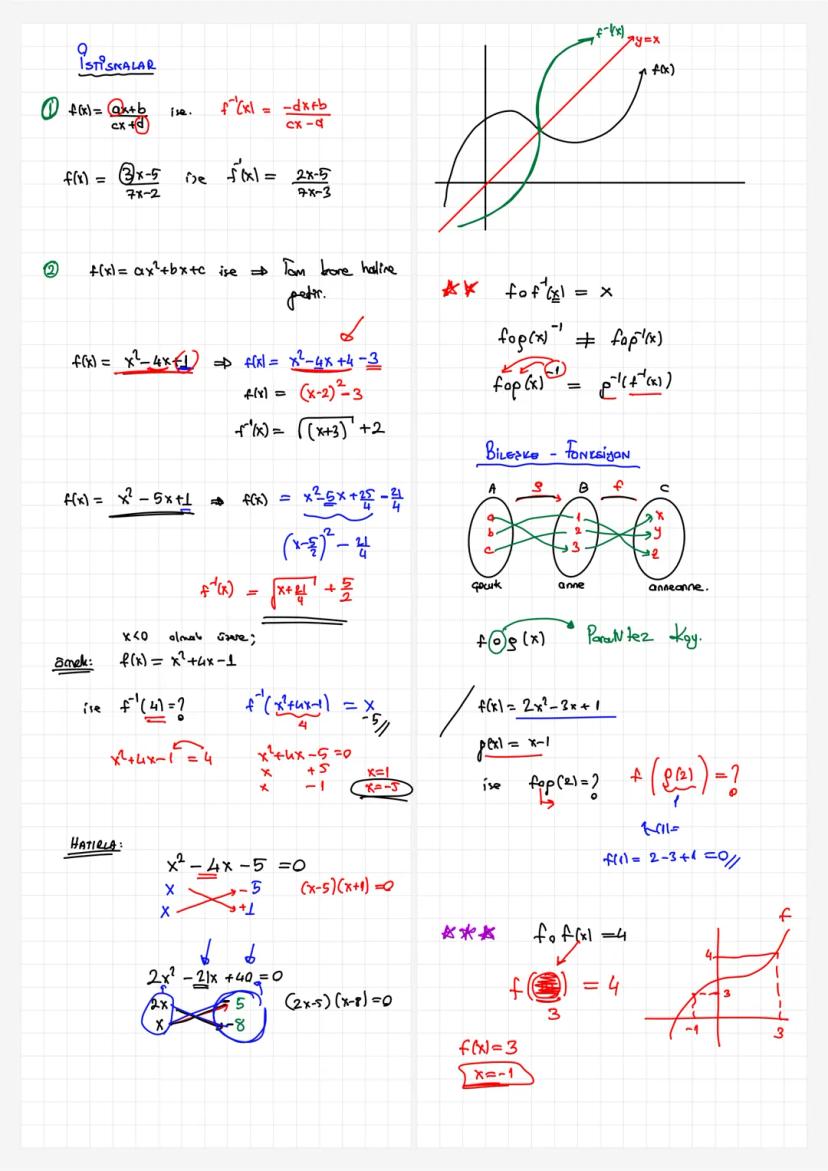 İSTİSNALAR
① f(x) = ax+b / cx+d ise. f⁻¹(x) = -dx+b / cx-a
f(x) = 3x-5 / 7x-2 ise f⁻¹(x) = 2x-5 / 7x-3
② f(x) = ax²+bx+c ise ⇒ Tam kare haline
getir.
f(x) = x²-4x+1 ⇒ f(x) = x²-4x+4-3
f(x) = (x-2)²-3
f⁻¹(x) = √(x+3) +2
f(x) = x²-5x+1 ⇒ f(x) = x²-5x+25/4 -21/4
(x-5/2)² - 21/4
f⁻¹(x) = √(x+21/4) + 5/2
x<0 olmak üzere;
Örnek: f(x) = x²+4x-1
ise f⁻¹(4)=? f⁻¹(x²+4x-1) = x
4 -5//
x²+4x-1 = 4 x²+4x-5=0
x +5 x=1
x -1 x=-5
HATIRLA:
x²-4x-5=0
x -5 (x-5)(x+1)=0
x +1
2x²-21x+40=0
2x -5 (2x-5)(x-8)=0
x -8
f⁻¹(x)
y=x
f(x)
★★ fof⁻¹(x) = x
fog(x)⁻¹ ≠ fog⁻¹(x)
fog(x)⁻¹ = g⁻¹(f⁻¹(x))
BİLEŞKE - FONKSİYON
A g B f C
a 1 x
b 2 y
c 3 z
çocuk anne anneanne.
fog(x) Parantez Koy.
f(x) = 2x²-3x+1
g(x) = x-1
ise fog(2)=? f(g(2))=?
1
f(1)=
f(1) = 2-3+1 =0//
★★★ fof(x) =4
f( ) = 4
3
f(x)=3
x=-1
f
4
3
-1 3